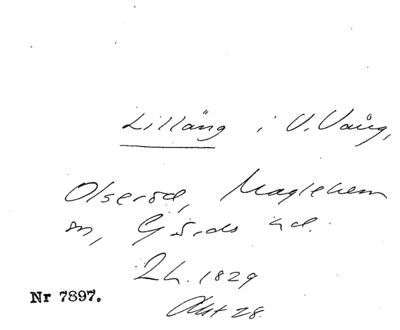 Lilläng i V. Vång,
Olseröd, Maglehem
sn, Gärds hd.
Lh. 1829
Akt 28.
Nr 7897.